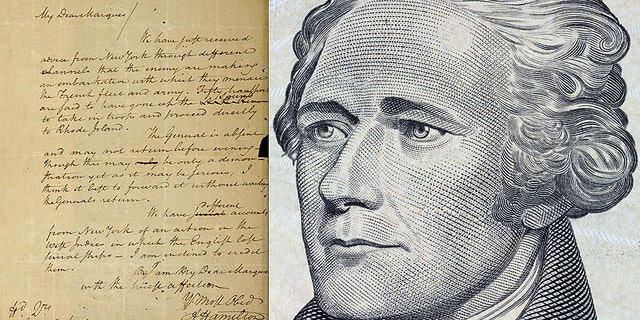 My Dear Marquis
We have just received
advice from New York through different
channels that the enemy are making
an embarkation with which they menace
the French fleet and army. Fifty transports
are said to have gone up the
to take in troops and proceed directly
to Rhode Island.
The General is absent
and may not return before evening
Though this may be only a demon-
stration yet as it may be serious, I
think it best to forward it without waiting
the Generals return.
We have different accounts
from New York of an action in the
West Indies in which the English lost
several ships - I am inclined to credit
them.
I am My Dear Marquis
with the truest affection
Yr Most Obed
A Hamilton